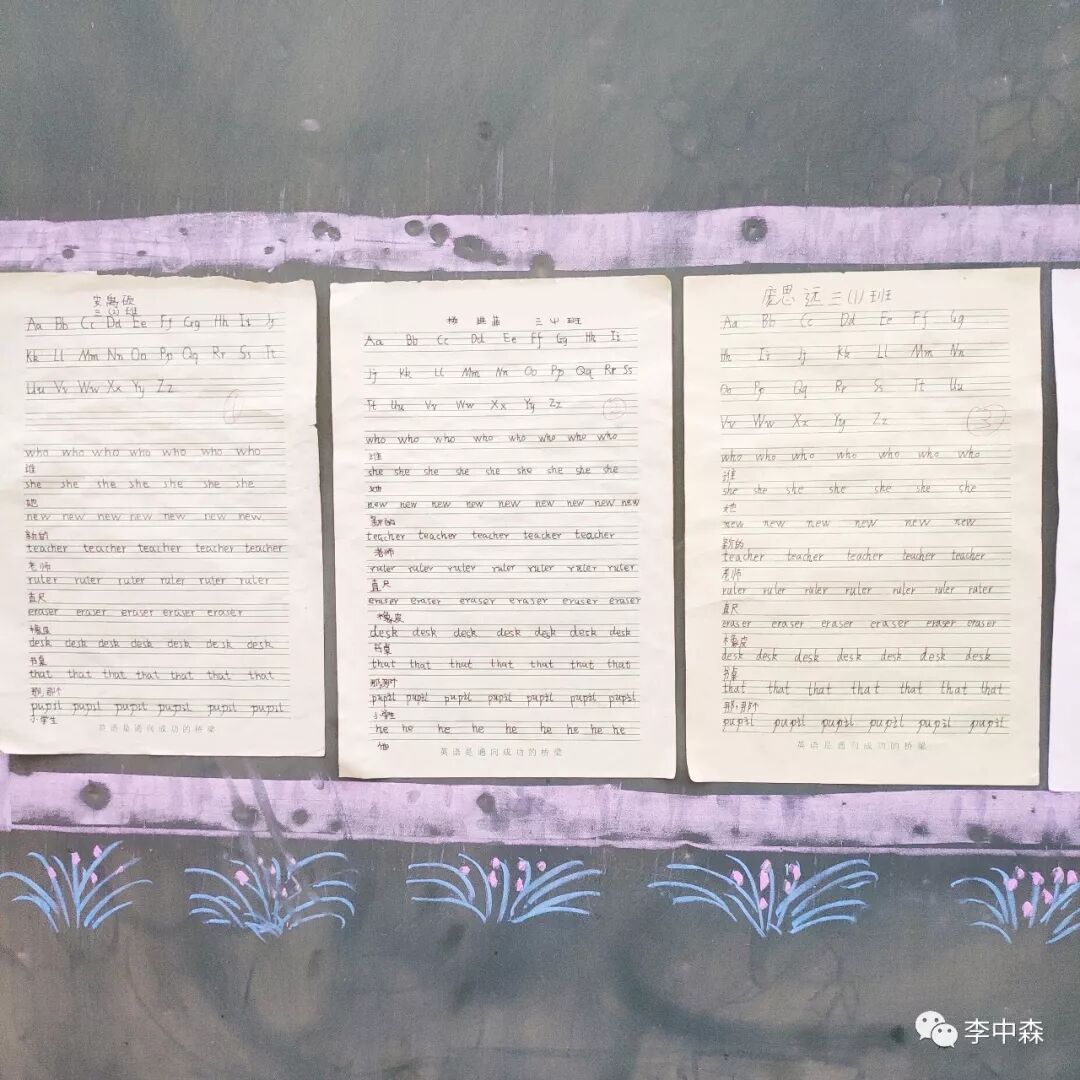 三(1)班
Aa Bb Cc Dd Ee Ff Gg Hh Ii Jj
Kk Ll Mm Nn Oo Pp Qq Rr Ss Tt
Uu Vv Ww Xx Yy Zz
①
who who who who who who who
谁
she she she she she she she
她
new new new new new new new
新的
teacher teacher teacher teacher teacher
老师
ruler ruler ruler ruler ruler ruler
直尺
eraser eraser eraser eraser eraser
橡皮
desk desk desk desk desk desk desk
书桌
that that that that that that that
那,那个
pupil pupil pupil pupil pupil pupil
小学生
英语是通向成功的桥梁
杨 三(1)班
Aa Bb Cc Dd Ee Ff Gg Hh Ii
Jj Kk Ll Mm Nn Oo Pp Qq Rr Ss
Tt Uu Vv Ww Xx Yy Zz
②
who who who who who who who who
谁
she she she she she she she she
她
new new new new new new new new new
新的
teacher teacher teacher teacher teacher
老师
ruler ruler ruler ruler ruler ruler ruler
直尺
eraser eraser eraser eraser eraser eraser
橡皮
desk desk desk desk desk desk desk
书桌
that that that that that that that
那,那个
pupil pupil pupil pupil pupil pupil pupil
小学生
he he he he he he he he
他
英语是通向成功的桥梁
庞思远 三(1)班
Aa Bb Cc Dd Ee Ff Gg
Hh Ii Jj Kk Ll Mm Nn
Oo Pp Qq Rr Ss Tt Uu
Vv Ww Xx Yy Zz
③
who who who who who who who
谁
she she she she she she she
她
new new new new new new
新的
teacher teacher teacher teacher teacher
老师
ruler ruler ruler ruler ruler ruler ruler
直尺
eraser eraser eraser eraser eraser eraser
橡皮
desk desk desk desk desk desk desk
书桌
that that that that that that that
那,那个
pupil pupil pupil pupil pupil pupil
英语是通向成功的桥梁
李中森